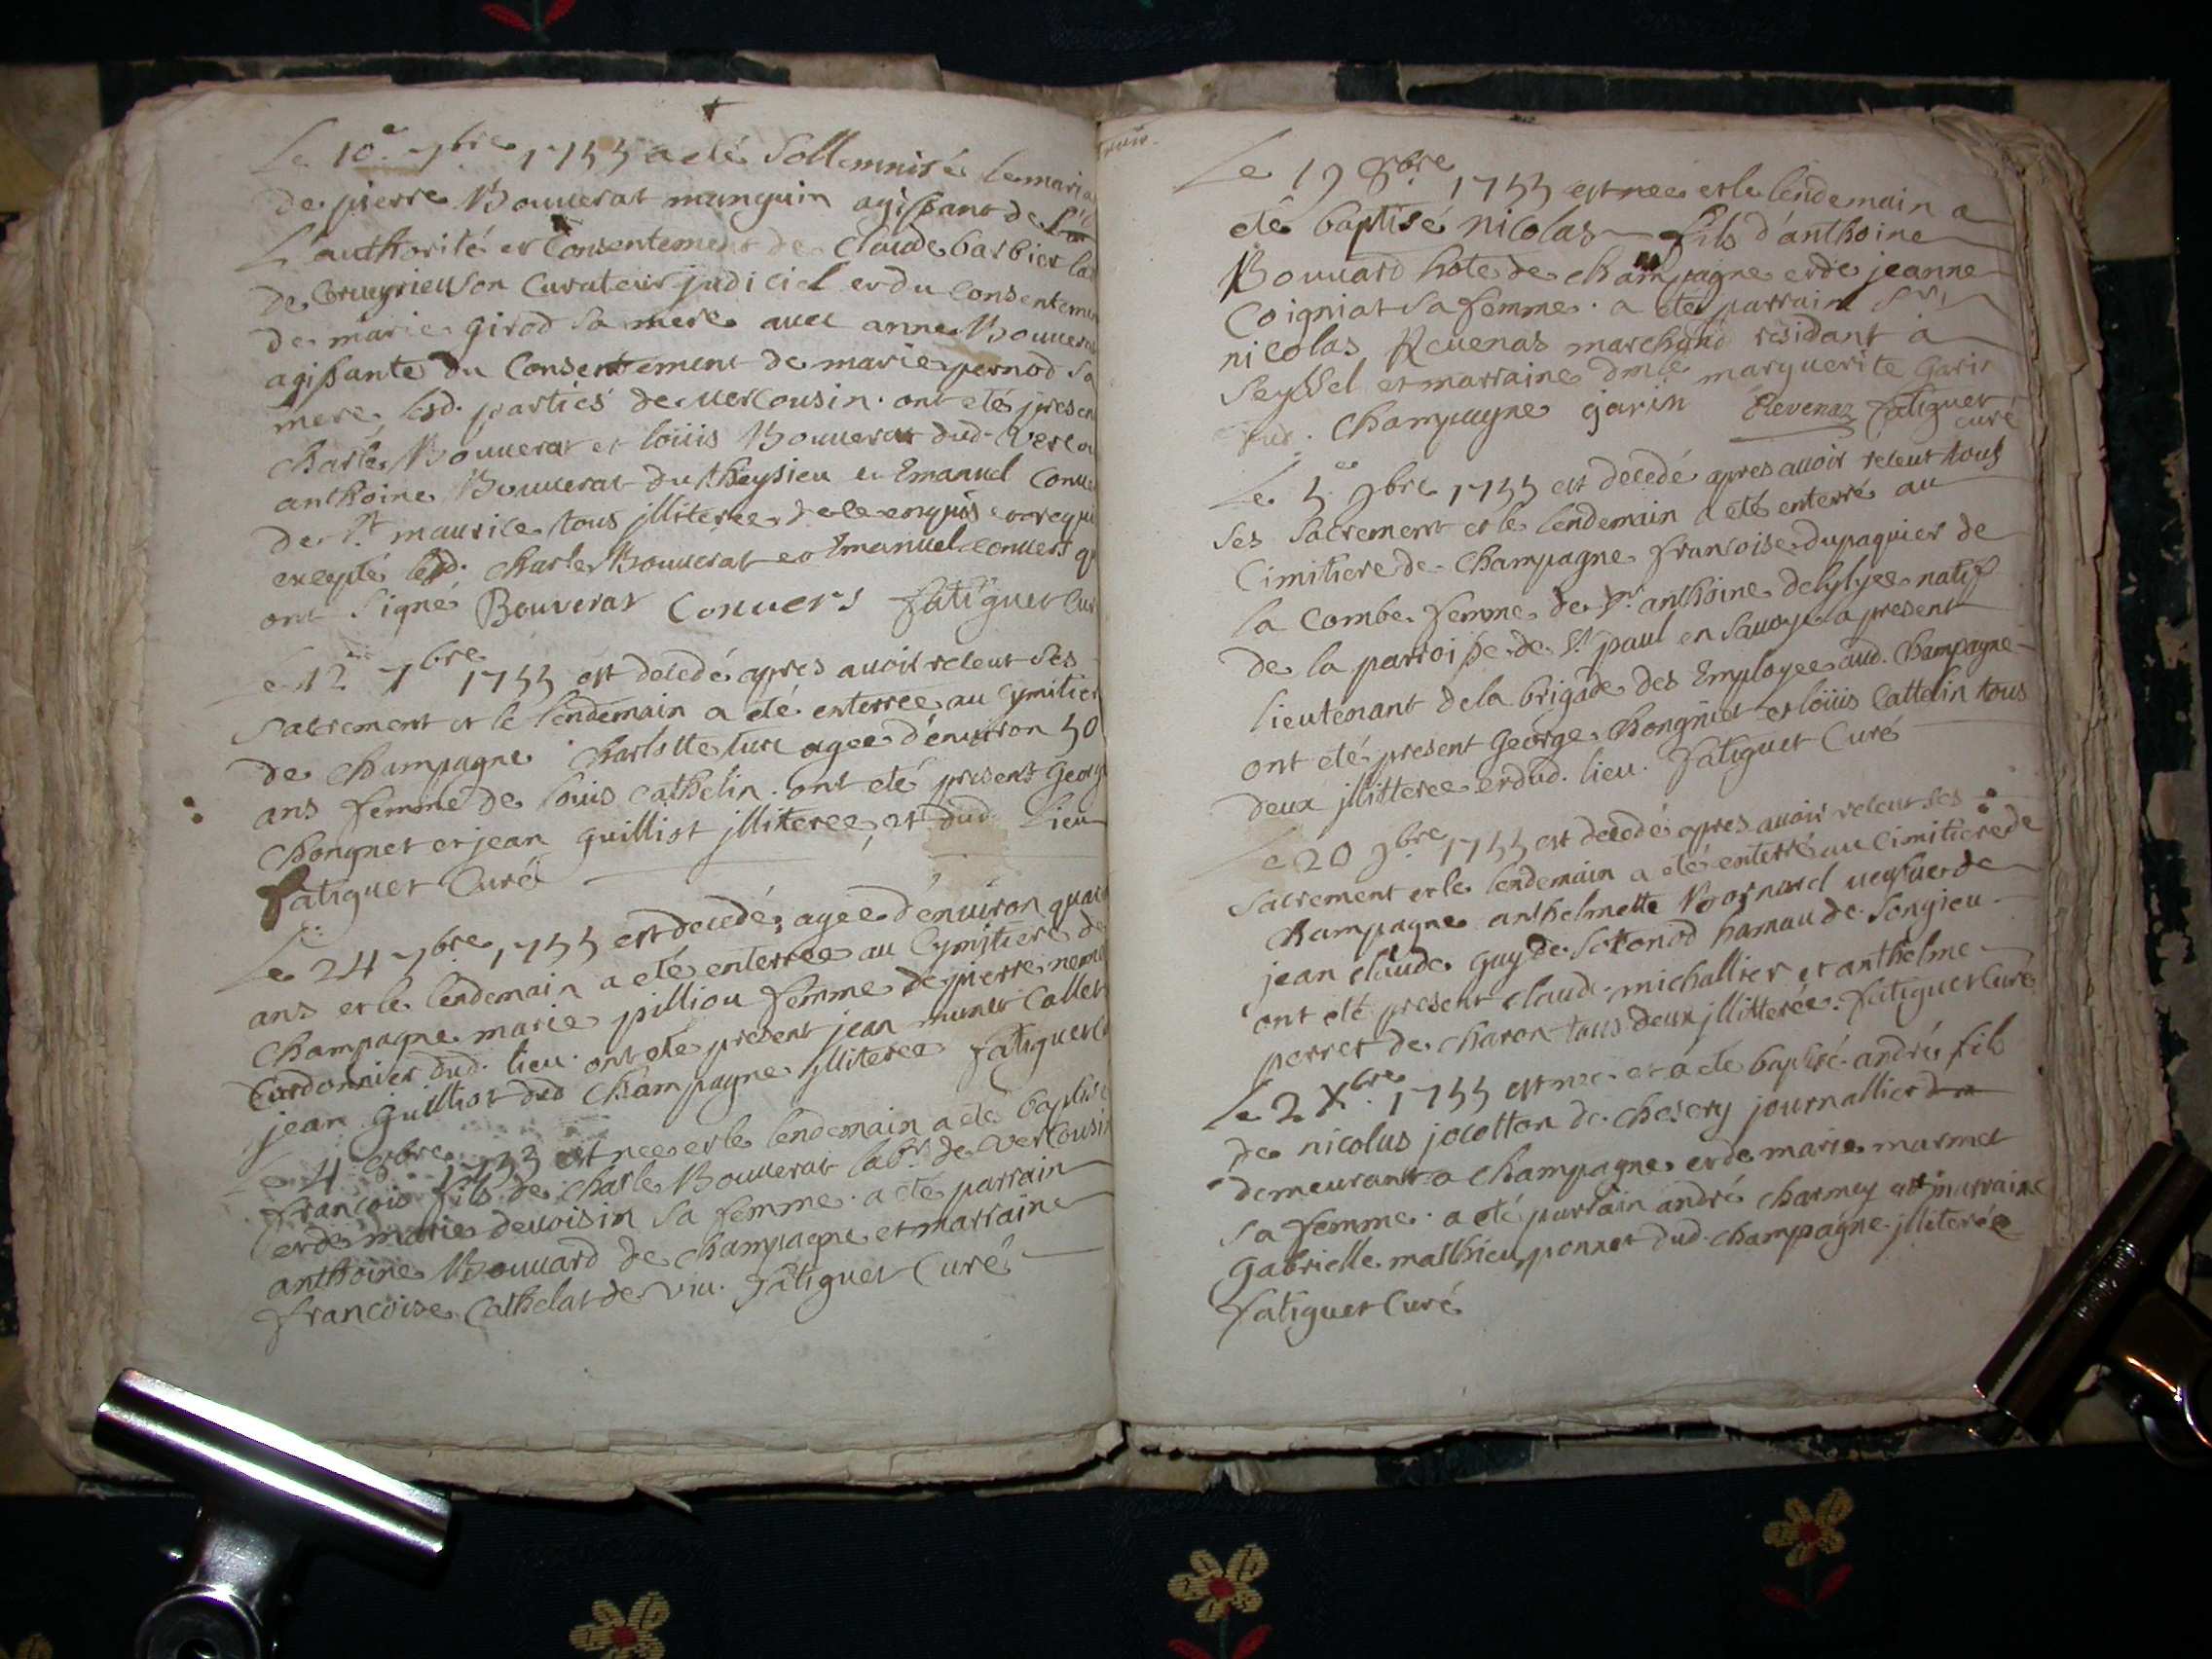 Le 10e 7bre 1755 a eté Sollemnisé le maria
de pierre Bouverat manguin agissant de
L'authorité et Consentement de Claude barbier
de Corveyrieu Son Curateur judiciel et du Consentemen
de marie girod sa mere avec anne Bouverat
agissante du Consentement de marie pernod sa
mere, lesd. parties de vercousin. ont eté presen
Charle Bouverat et loüis Bouverat dud. Verco
anthoine Bouverat du theysieu et Emanuel Conve
de St maurice tous jlliteree de ce enquis et requi
excepté led. Charle Bouverat et Emanuel Convers q
ont Signé Bouverat Convers fatiguet Cur
Le 12 7bre 1755 est decedé apres avoir receut Ses
Sacrement et le lendemain a eté enterree au Cymitier
de Champagne Charlotte ture agee d'environ 50
ans femme de louis Cathelin. ont eté present George
Chongnet et jean guilliot jlliteree, et dud. Lieu
fatiguet Curé
Le 24 7bre 1755 est decedé, agee d'environ quar
ans et le lendemain a eté enterree au Cymitiere de
Champagne marie pilliou femme de pierre
Cordonnier dud. lieu. ont eté present jean munet Callet
jean guilliot dud Champagne jlliteree fatiguet C
Le 4 8bre 1755 est nee et le lendemain a eté baptisé
francois fils de Charle Bouverat labr de Vercousin
et de marie devoisin sa femme. a eté parrain
anthoine Bouvard de Champagne et marraine
francoise Cathelat de viu. fatiguet Curé
Le 19 8bre 1755 est nee et le lendemain a
eté baptisé nicolas fils d'anthoine
Bouvard hote de Champagne et de jeanne
Coigniat sa femme. a eté parrain Sr
nicolas Revenas marchand residant a
Seyssel et marraine dmlle marguerite Garin
dud. Champagne garin Revenaz fatiguet
curé
Le 5 9bre 1755 est decedé apres avoir receut tous
ses Sacrement et le lendemain a eté enterré au
Cimitiere de Champagne francoise dupaquier de
la Combe femme de Sr anthoine delylyee natif
de la parroisse de St paul en Savoye a present
lieutenant de la brigade des Employee aud. Champagne
ont eté present George Chongnet et loüis Cattelin tous
deux jllitteree et dud. lieu. fatiguet Curé
Le 20 9bre 1755 est decedé apres avoir receut ses
Sacrement et le lendemain a eté enterré au Cimitiere de
Champagne anthelmette Bornard veufve de
jean claude guy de Sotonod hamau de Songieu
ont eté present claude michallier et anthelme
perret de charon tous deux jllitterée. fatiguet Curé
Le 2 Xbre 1755 est nee et a eté baptisé andré fils
de nicolas jocotton de Chesery journallier
demeurant a Champagne et de marie marmet
sa femme. a eté parrain andré Charmey et marraine
Gabrielle mathieu ponnet dud. Champagne jlliterée
fatiguet Curé